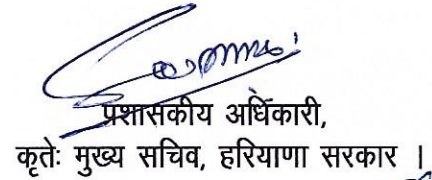 प्रशासकीय अधिकारी,
कृतेः मुख्य सचिव, हरियाणा सरकार ।